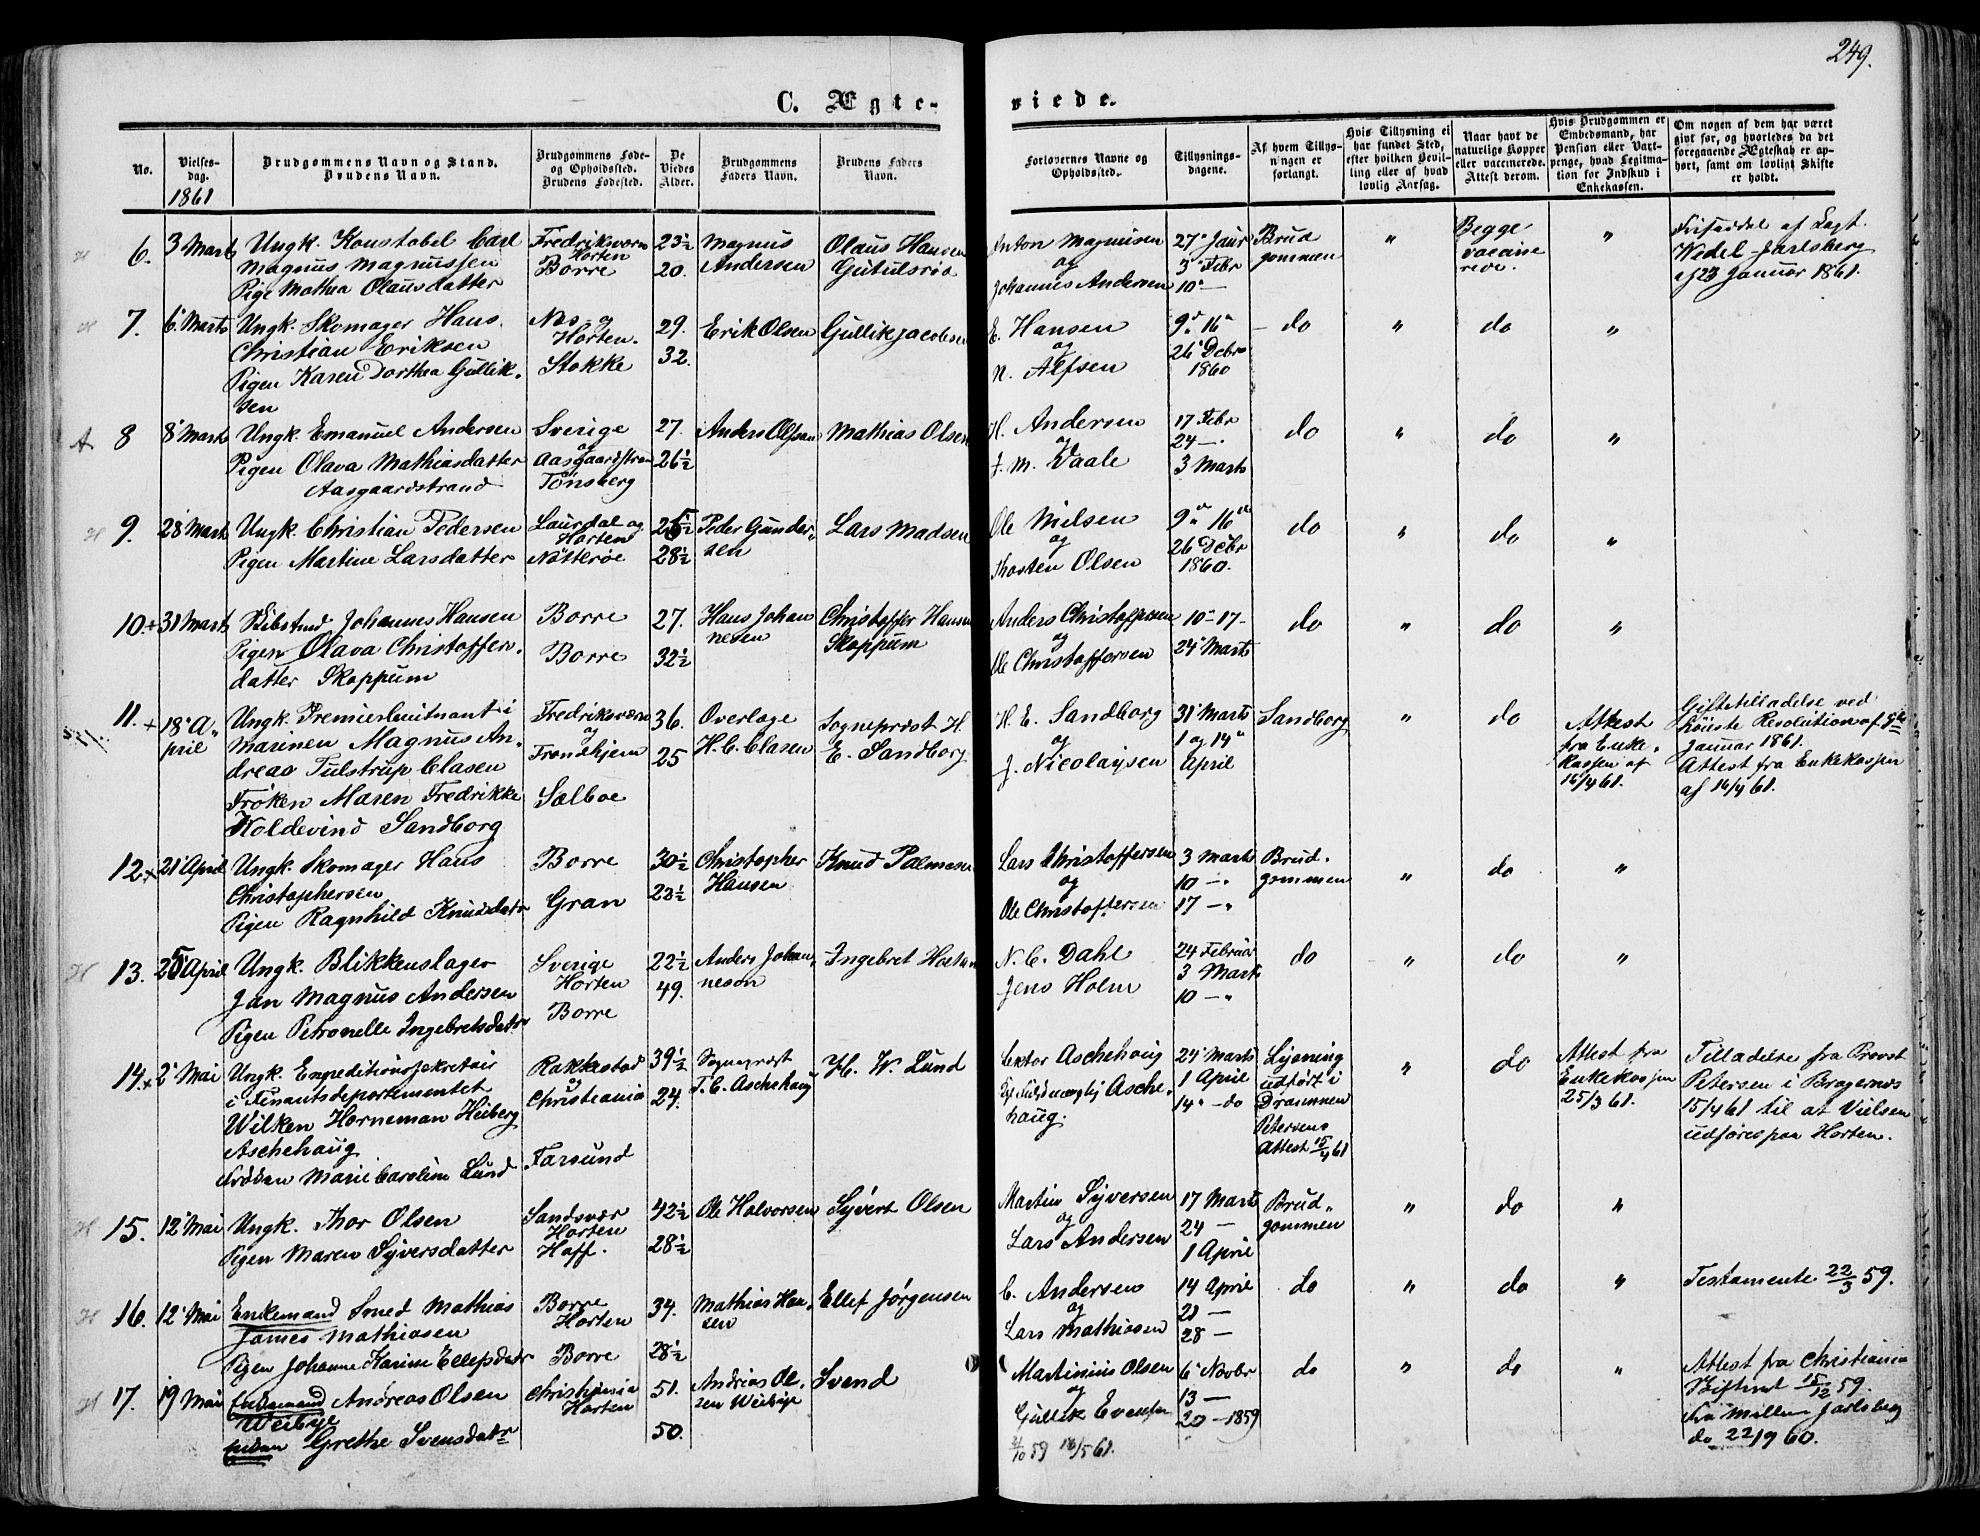 249.
C. Ægte-
viede.
No.
Vielses-
dag.
1861
Brudgommens Navn og Stand.
Brudens Navn.
Brudgommens Føde-
og Opholdssted.
Brudens Fødested.
De
Viedes
Alder.
Brudgommens
Faders Navn.
Brudens Faders
Navn.
Forlovernes Navne og
Opholdssted.
Tillysnings-
dagene.
Af hvem Tillys-
ningen er
forlangt.
Hvis Tillysning ei
har fundet Sted,
efter hvilken Bevil-
ling eller af hvad
lovlig Aarsag.
Naar havt de
naturlige Kopper
eller vaccinerede.
Attest derom.
Hvis Brudgommen er
Embedsmand, har
Pension eller Vart-
penge, hvad Legitima-
tion for Indskud i
Enkekassen.
Om nogen af dem har været
gift før, og hvorledes da det
foregaaende Ægteskab er op-
hørt, samt om lovligt Skifte
er holdt.
6.
3 Marts
Ungk. Konstabel Carl
Magnus Magnussen
Pige Mathea Olausdatter
Fredriksværn
Horten
Borre
23½
20.
Magnus
Andersen
Olaus Hansen
Gutulsrød
Anton Magnusen
og
Johannes Andersen
27 Janr
3 Febr
10 —
Brud
gommen
"
Begge
vaccine
rede.
"
Wedel Jarlsberg
af 23 Januar 1861.
7.
6 Marts
Ungk. Skomager Hans
Christian Eriksen
Pigen Karen Dorthea Gullik-
sen
Næs og
Horten.
Stokke
29.
32.
Erik Olsen
Gullik Jacobsen
E. Hansen
og
N. Alfsen
9 16
26 Debr
1860
do
"
do
"
8
8 Marts
Ungk. Emanuel Andersen
Pigen Olava Mathiasdatter
Aasgaardstrand
Sverige
og
Aasgaardstran
Tønsberg
27.
26½
Anders Olsson
Mathias Olsen
H. Andersen
og
J. M. Vaale
17 Febr
24 —
3 Marts
do
"
do
"
9.
28 Marts
Ungk. Christian Pedersen
Pigen Martine Larsdatter
Laurdal og
Horten
Nøtterøe
25½
28½
Peder Gunder-
sen
Lars Madsen
Ole Nielsen
og
Thosten Olsen
9 16
26 Debr
1860.
do
"
do
"
10.
31 Marts
Johannes Hansen
Pigen Olava Christoffers-
datter Skoppum
Borre
Borre
27.
32½
Hans Johan
nesen
Christoffer Hansen
Skoppum
Anders Christoffersen
og
Ole Christoffersen
10 - 17 -
24 Marts
do
"
do
"
11.
18 A-
pril
Ungk. Premierleutnant i
Marinen Magnus An-
dreas Tulstrup Clasen
Frøken Maren Fredrikke
Koldevind Sandborg
Fredriksværn
og
Trondhjem
Sælboe
36.
25
Overlæge
H. C. Clasen
Sogneprest H.
E. Sandborg
H. E. Sandborg
og
J. Nicolaysen
31 Marts
1 og 14
April
Sandborg
"
do
Attest
fra Enke-
kassen af
16/4 61.
Giftetilladelse ved
høieste Resolution af
Januar 1861.
Attest fra Enkekassen
af 16/4 61.
12
21 April
Ungk. Skomager Hans
Christophersen
Pigen Ragnhild Knudsdatr
Borre
Gran
30½
23½
Christopher
Hansen
Knud Palmesen
Lars Christoffersen
og
Ole Christoffersen
3 Marts
10 —
17 —
Brud-
gommen
"
do
"
13.
25 April
Ungk. Blikkenslager
Jan Magnus Andersen
Pigen Petronelle Ingebretsdatr
Sverige
Horten
Borre
22½
49.
Anders Johan-
neson
Ingebret
N. C. Dahl
Jens Holm
24 Februar
3 Marts
10 —
do
"
do
"
14
2 Mai
Ungk. Expeditionssekretair
i Finantsdepartementet
Wilken Horneman Heiberg
Aschehaug
Frøken Marie Caroline Lund
Rakkestad
og
Christiania
Farsund
39½
24.
Sogneprest
T. C. Aschehaug
H. W. Lund
Lektor Aschehoug
Asche-
haug.
24 Marts
1 April
14 — do
Lysning
udført i
Drammen
Petersens
Attest 15/4 61
"
do
Attest fra
Enkekassen
25/3 61.
Tilladelse fra Provst
Petersen i Bragernes
15/4 61 til at Vielsen
udføres paa Horten.
15.
12 Mai
Ungk. Thor Olsen
Pigen Maren Syversdatter
Sandsvær
Horten
Hoff.
42½
28½
Ole Halvorsen
Syvert Olsen
Martin Syversen
og
Lars Andersen
17 Marts
24 —
1 April
Brud-
gommen
"
do
"
16.
12 Mai
Enkemand Smed Mathias
James Mathiasen
Pigen Johanne Karine Ellefsdatr
Borre
Horten
Borre
34.
28½
Mathias Han-
sen
Ellef Jørgensen
C. Andersen
og
Lars Mathiasen
14 April
21 —
28 —
do
"
do
"
Testamente 22/3 59.
17.
19 Mai
Enkemand Andreas Olsen
Weibye
Enken Grethe Svensdatr
Christiania
Horten
51.
50.
Andreas Ol-
sen Weibye
Svend
Martinius Olsen
og
Gullik Evensen
6 Novbr
13 —
20 — 1859
do
"
do
"
Attest fra Christiania
Skifteret 15/12 59.
Fra Mellem Jarlsberg
do 22/9 60.